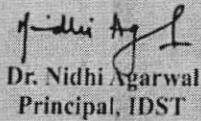 Nidhi Ag
Dr. Nidhi Agarwal
Principal, IDST